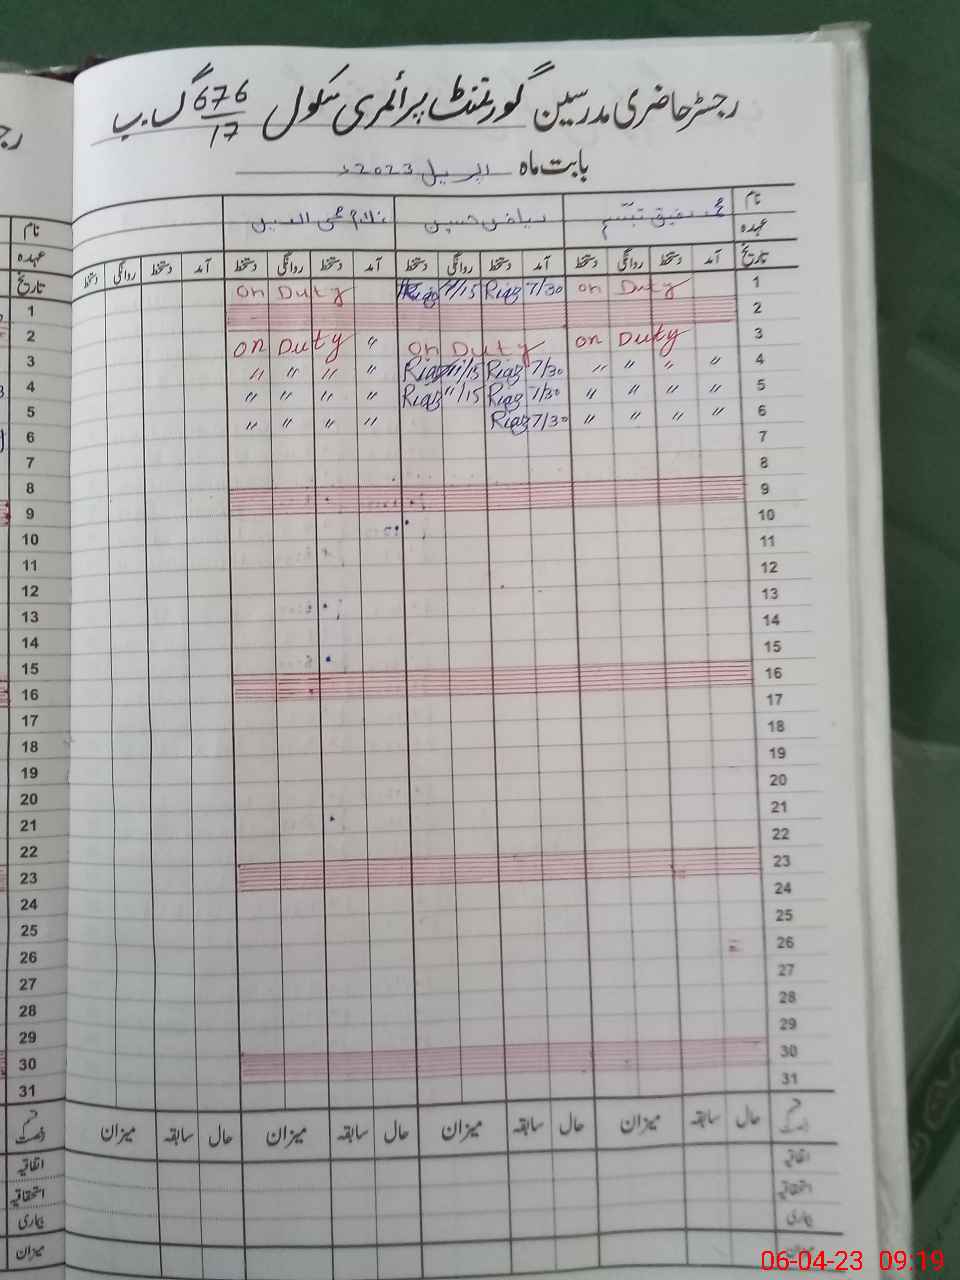 رجسٹر حاضری مدرسین گورنمنٹ پرائمری سکول 676/17 گ ب
بابت ماہ اپریل 2023ء
نام محمد رفیق تبسم ریاض حسین غلام محی الدین
عہدہ
تاریخ آمد دستخط روانگی دستخط آمد دستخط روانگی دستخط آمد دستخط روانگی دستخط آمد دستخط روانگی دستخط
1 on Duty 7/30 Riaz 11/15 Riaz on Duty
2
3 on Duty on Duty on Duty "
4 " " " " 7/30 Riaz 11/15 Riaz " " " "
5 " " " " 7/30 Riaz 11/15 Riaz " " " "
6 " " " " 7/30 Riaz " " " "
7
8
9
10
11
12
13
14
15
16
17
18
19
20
21
22
23
24
25
26
27
28
29
30
31
قسم رخصت حال سابقہ میزان حال سابقہ میزان حال سابقہ میزان حال سابقہ میزان
اتفاقیہ
استحقاقیہ
بیماری
میزان
نام
عہدہ
تاریخ
1
2
3
4
5
6
7
8
9
10
11
12
13
14
15
16
17
18
19
20
21
22
23
24
25
26
27
28
29
30
31
قسم رخصت
اتفاقیہ
استحقاقیہ
بیماری
میزان
06-04-23 09:19